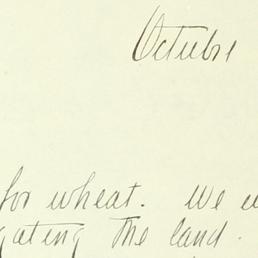 Octubre
for wheat. We
gating the land.